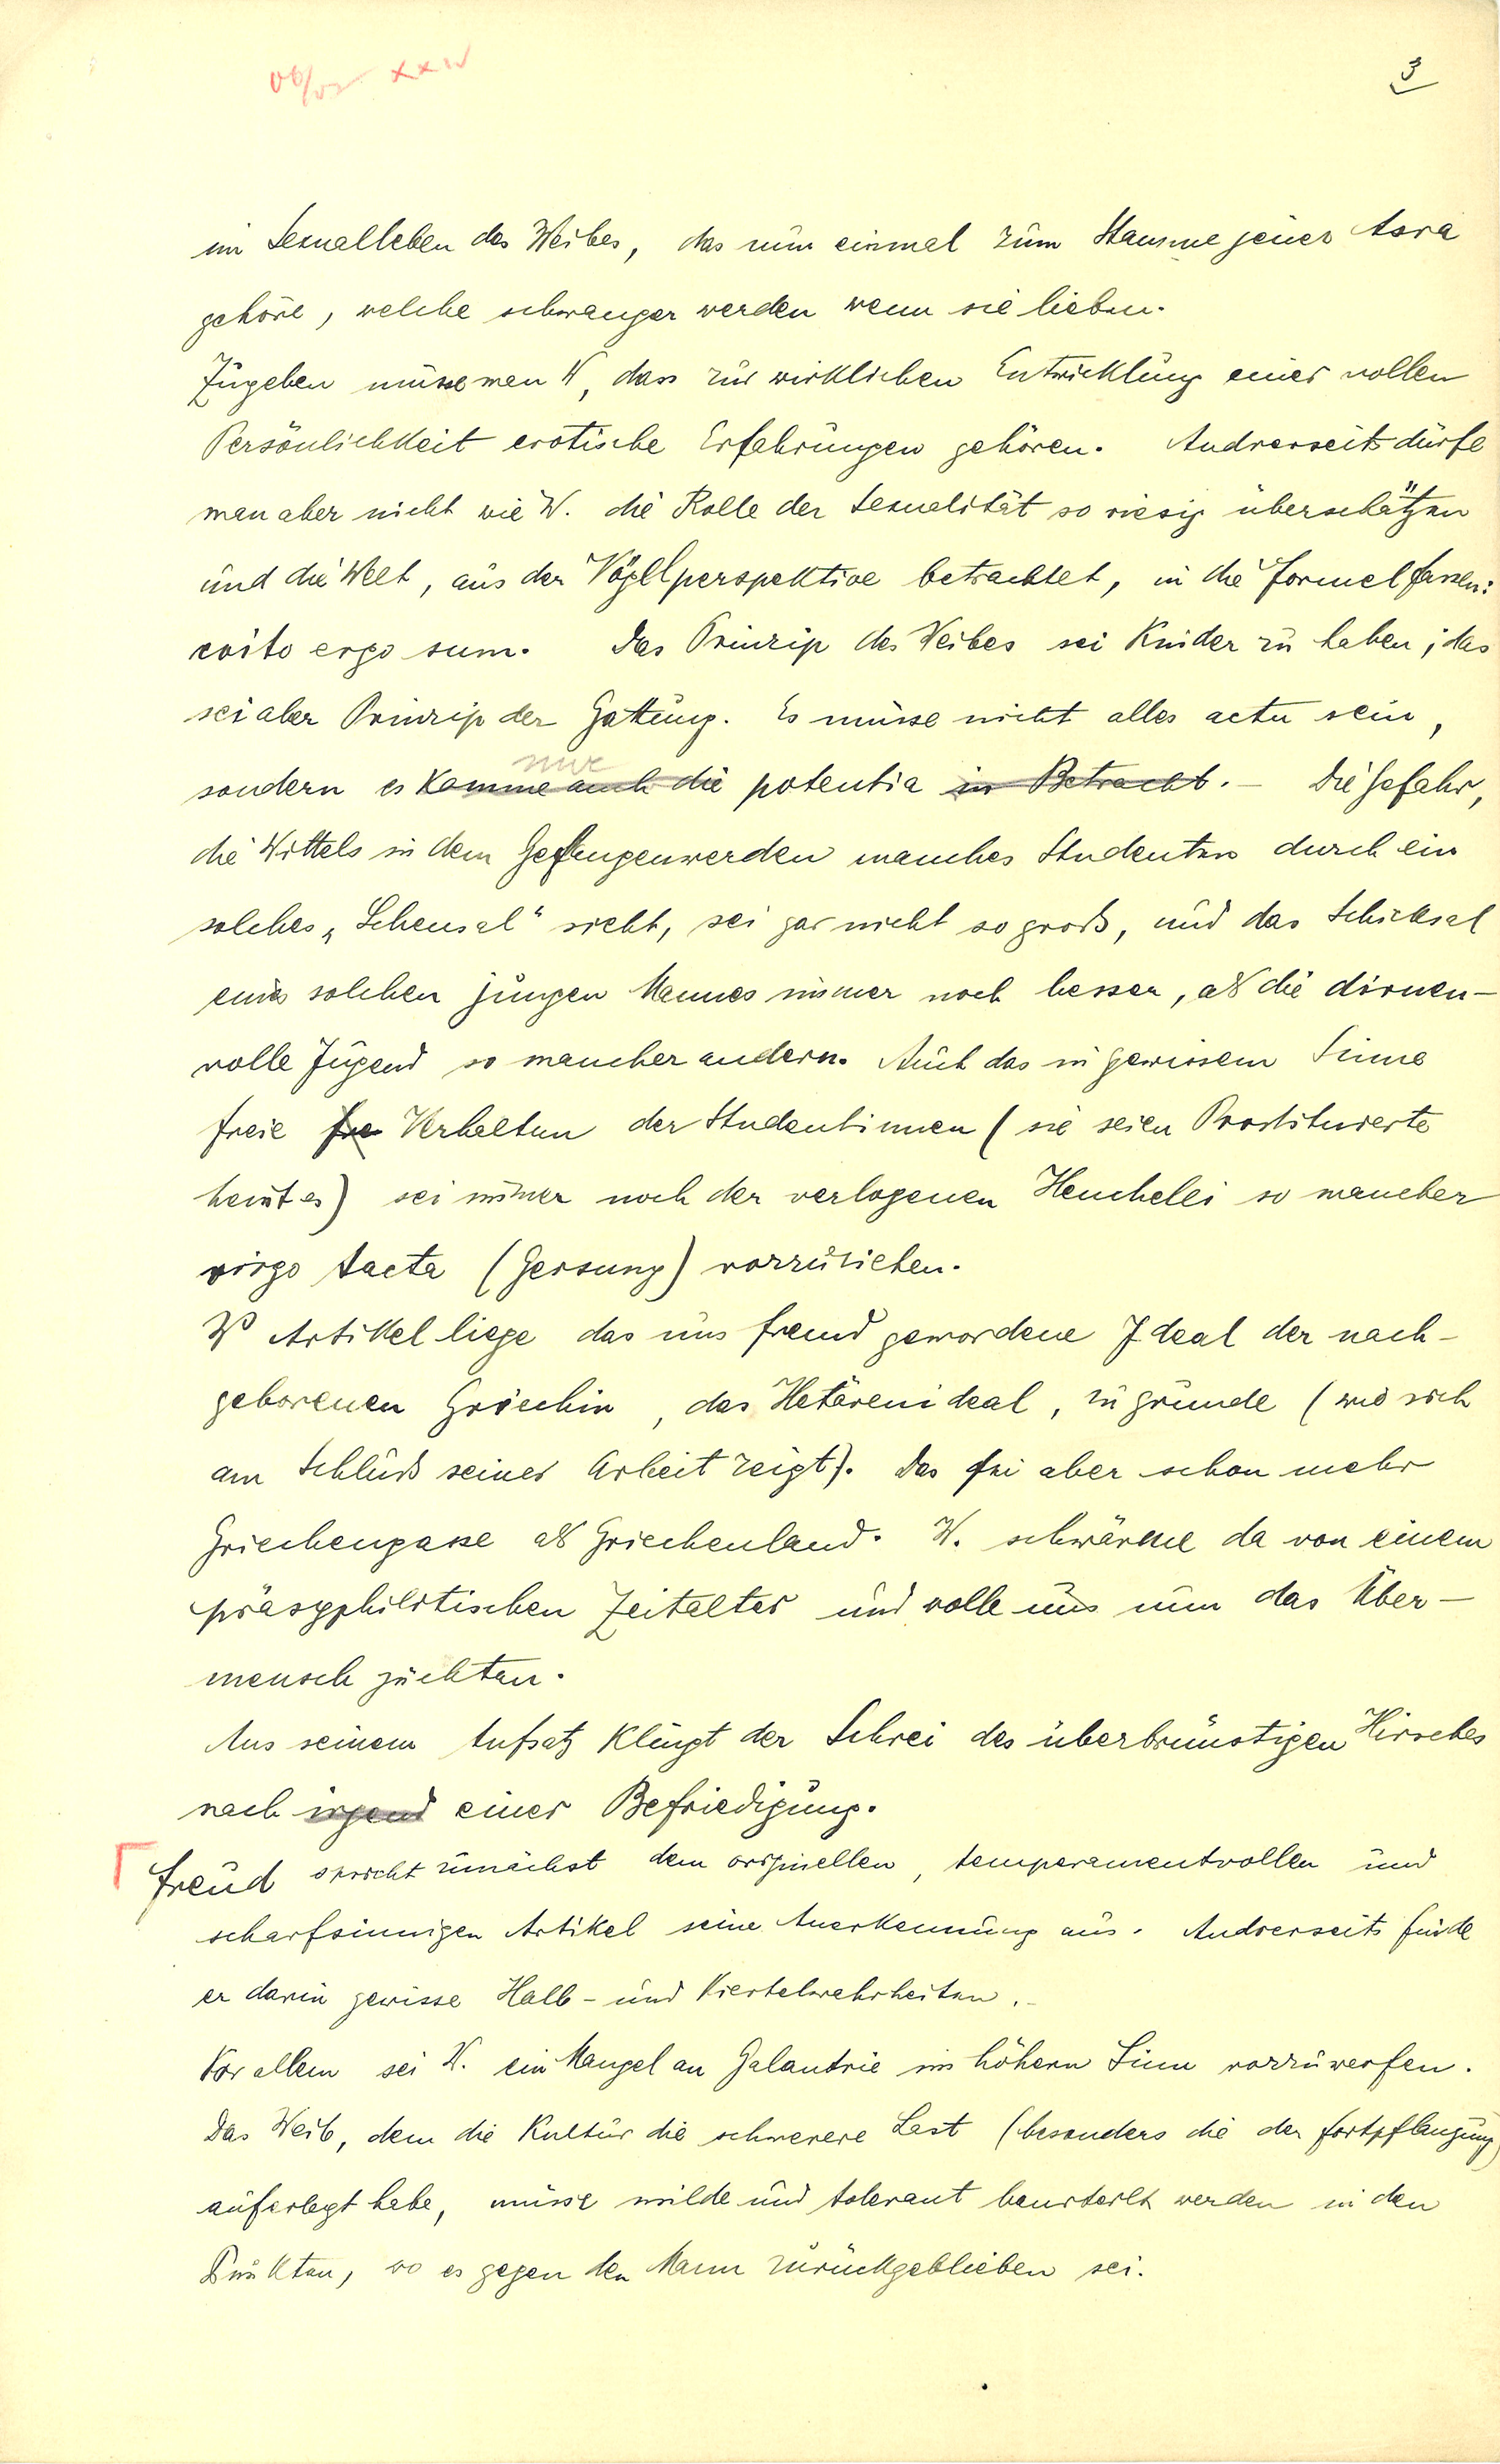 3
im Sexualleben des Weibes, das nun einmal zum Stamme jener Asra
gehöre, welche schwanger werden wenn sie lieben.
Zugeben müsse man W, dass zur wirklichen Entwicklung einer vollen
Persönlichkeit erotische Erfahrungen gehören. Andrerseits dürfe
man aber nicht wie W. die Rolle der Sexualität so riesig überschätzen
und die Welt, aus der Vögelperspektive betrachtet, in die Formel fassen:
coito ergo sum. Das Prinzip des Weibes sei Kinder zu haben; das
sei aber Prinzip der Gattung. Es müsse nicht alles actu sein,
nur
sondern es komme auch die potentia in Betracht. – Die Gefahr,
die Wittels in dem Gefangenwerden manches Studenten durch ein
solches „Scheusal“ sieht, sei gar nicht so groß, und das Schicksal
eines solchen jungen Mannes immer noch besser, als die dirnen-
volle Jugend so mancher andern. Auch das in gewissem Sinne
freie fre Verhalten der Studentinnen (sie seien Prostituierte
heißt es) sei immer noch der verlogenen Heuchelei so mancher
virgo tacta (Gersuny) vorzuziehen.
Ws Artikel liege das uns fremd gewordene Ideal der nach-
geborenen Griechin, das Hetärenideal, zu grunde (wie sich
am Schluß seiner Arbeit zeigt). Das sei aber schon mehr
Griechengasse als Griechenland. W. schwärme da von einem
präsyphilitischen Zeitalter und wolle uns nun das Über-
mensch züchten.
Aus seinem Aufsatz klingt der Schrei des überbrünstigen Hirsches
nach irgend einer Befriedigung.
Freud spricht zunächst dem originellen, temperamentvollen und
scharfsinnigen Artikel seine Anerkennung aus. Andrerseits finde
er darin gewisse Halb- und Viertelwahrheiten. –
Vor allem sei W. ein Mangel an Galantrie im höhern Sinn vorzuwerfen.
Das Weib, dem die Kultur die schwerere Last (besonders die der Fortpflanzung)
auferlegt habe, müsse milde und tolerant beurteilt werden in den
Punkten, wo es gegen den Mann zurückgeblieben sei.